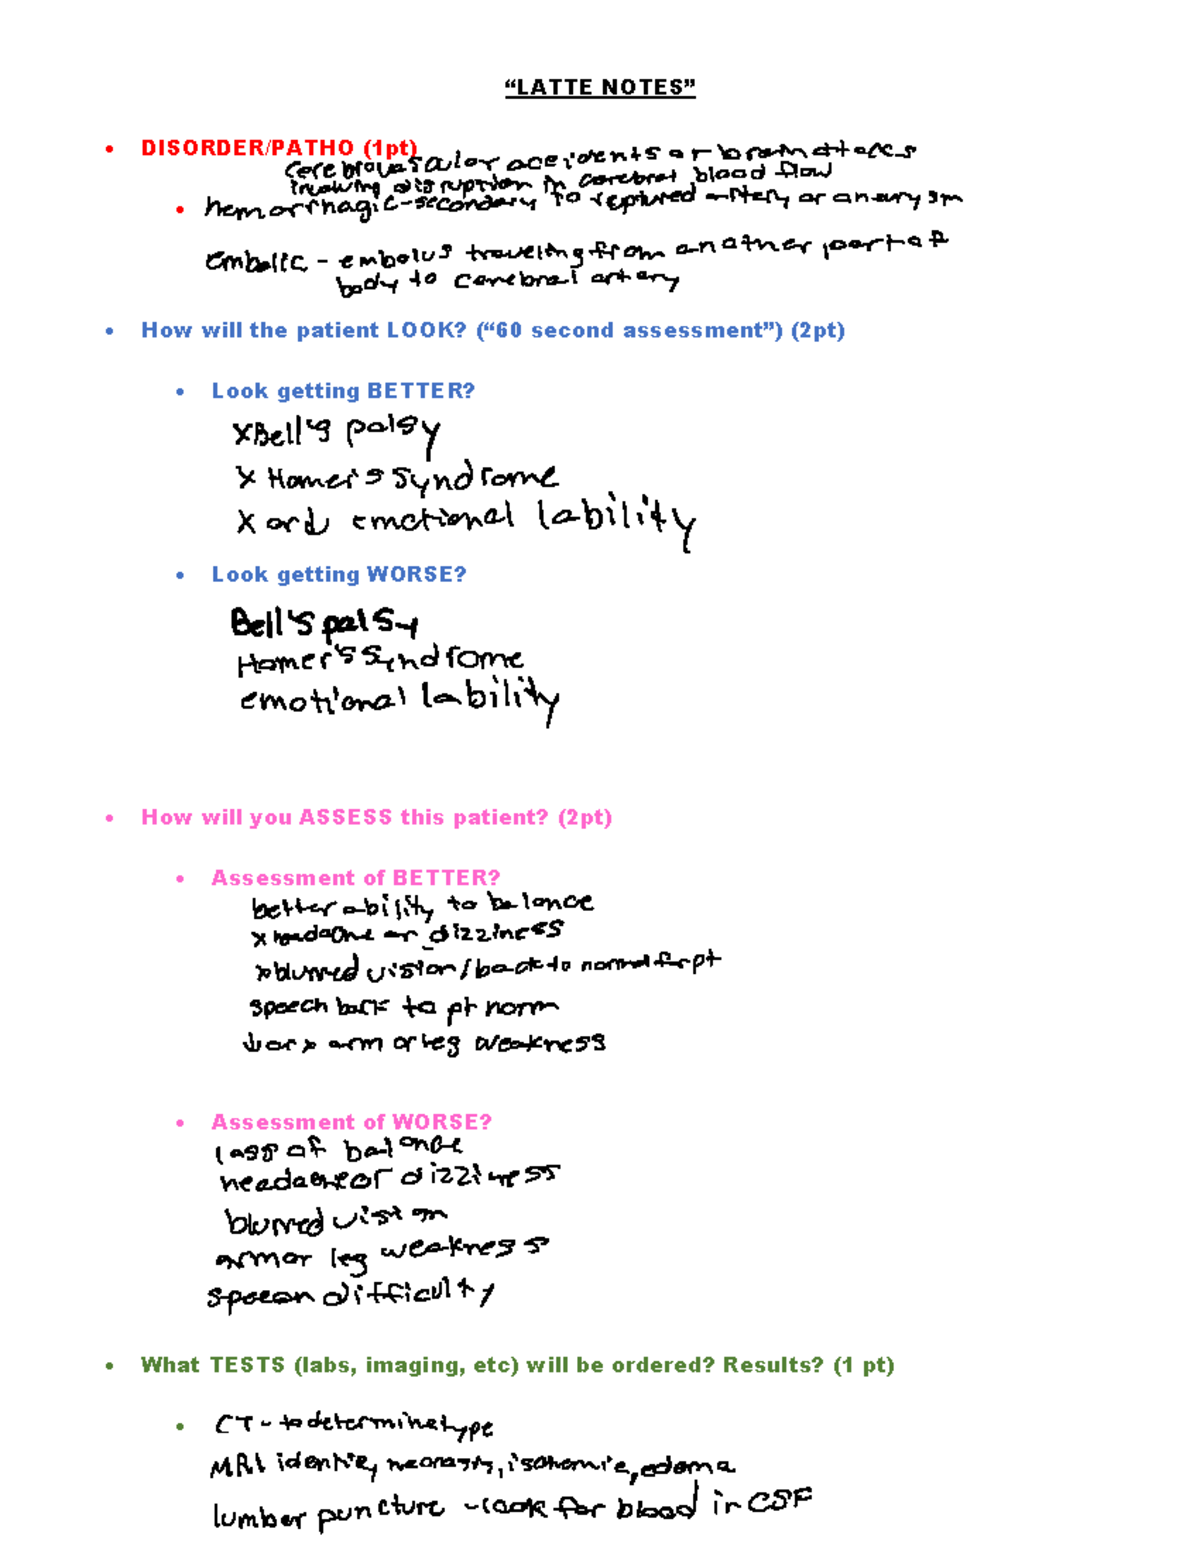 “LATTE NOTES”
• DISORDER/PATHO (1pt)
cerebrovascular accidents or brain attacks
involving disruption in cerebral blood flow
• hemorrhagic-secondary to reptured artery or anarysm
embolic - embolus traveling from another part of
body to cerebral artery
• How will the patient LOOK? (“60 second assessment”) (2pt)
• Look getting BETTER?
x Bell's palsy
x Homer's syndrome
x or ↓ emotional lability
• Look getting WORSE?
Bell's palsy
Homer's syndrome
emotional lability
• How will you ASSESS this patient? (2pt)
• Assessment of BETTER?
better ability to balance
x headache or dizziness
x blurred vision/back to normal for pt
speech back to pt norm
↓ or x arm or leg weakness
• Assessment of WORSE?
loss of balance
headache or dizziness
blurred vision
arm or leg weakness
speech difficulty
• What TESTS (labs, imaging, etc) will be ordered? Results? (1 pt)
• CT - to determine type
MRI edema
lumber puncture - look for blood in CSF